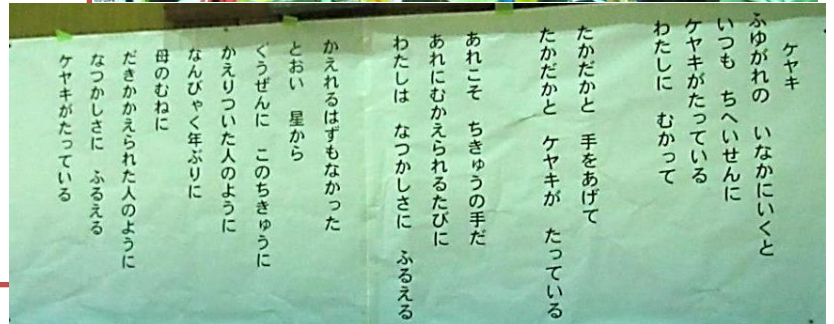 ケヤキ
ふゆがれの いなかにいくと
いつも ちへいせんに
ケヤキがたっている
わたしに むかって
たかだかと 手をあげて
たかだかと ケヤキが たっている
あれこそ ちきゅうの手だ
あれにむかえられるたびに
わたしは なつかしさに ふるえる
かえれるはずもなかった
とおい 星から
ぐうぜんに このちきゅうに
かえりついた人のように
なんびゃく年ぶりに
母のむねに
だきかかえられた人のように
なつかしさに ふるえる
ケヤキがたっている